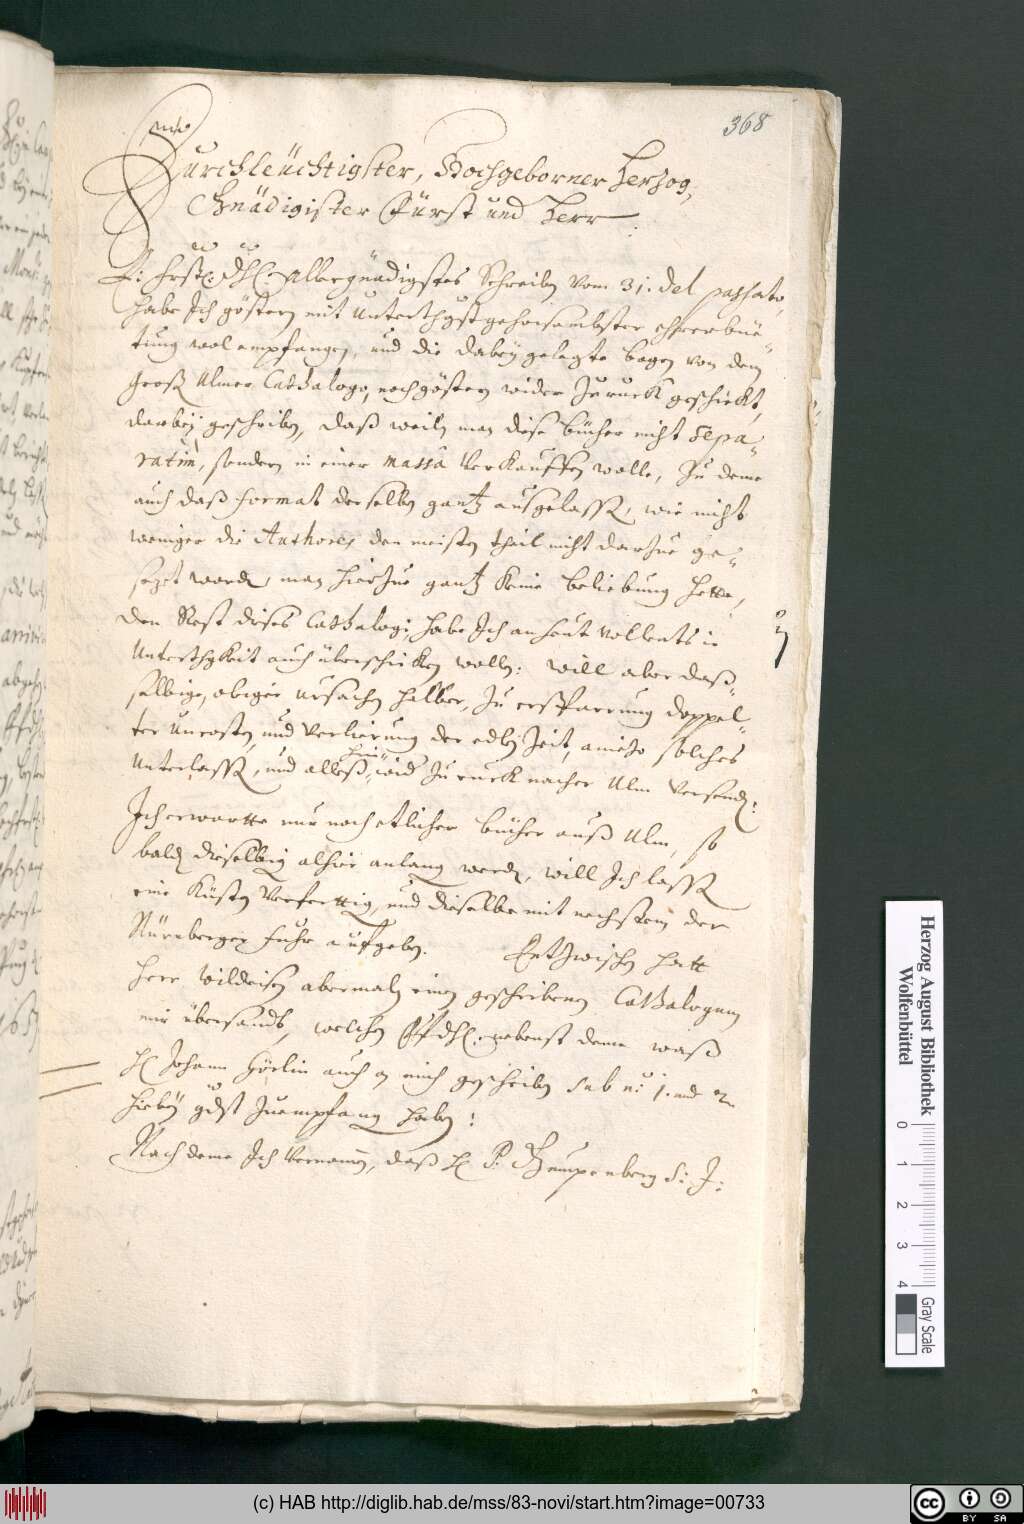 368
Durchleüchtigster, Hochgeborner Herzog,
Gnädigister Fürst und Herr
E: Frstl: Dhl: Allergnädigstes Schreiben vom 31. del passato,
habe Ich göstern mit Unterthgst gehorsambster ehrerbüe-
tung wol empfangen, und die dabey gelegte bogen von dem
Groß Ulmer Cathalogo, noch göstern wider Zuruck geschickt,
darbey geschriben, daß weiln man dise bücher nicht sepa-
ratim, sondern in einer massa verkauffen wolle, Zu deme
auch daß format derselben gantz ausgelassen, wie nicht
weniger die Authores den meisten theil nicht darzue ge-
sezet worden, man hierzue gantz keine beliebung hette,
Den Rest dises Cathalogi, habe Ich an heut vollents in
Unterthgkeit auch überschicken wollen: will aber daß-
selbige, obiger ursachen halber, Zu ersparrung doppel-
ter Uncosten, und verlierung der edlen Zeit, aniezo solches
Unterlassen, und alleß hin-wider Zuruck nacher Ulm versenden:
Ich erwartte nur noch etlicher bücher auß Ulm, so
bald dieselbig alhier anlang werden, will Ich lassen
eine Küsten verfertig, und dieselbe mit nechstem der
Nürnberger Fuhr aufgeben. Entzwischen hatt
Herr Wildeisen abermaln einen geschribenen Cathalogum
mir übersandt, welchen EFDhl: nebenst deme waß
H Johann Görlin auch an mich geschriben sub n: 1. und 2.
hiebey gdst Zuempfang haben:
Nach deme Ich vernommen, daß H P. Gumpenberg S: J:
Herzog August Bibliothek
Wolfenbüttel
0 1 2 3 4
Gray Scale
(c) HAB http://diglib.hab.de/mss/83-novi/start.htm?image=00733
cc BY SA